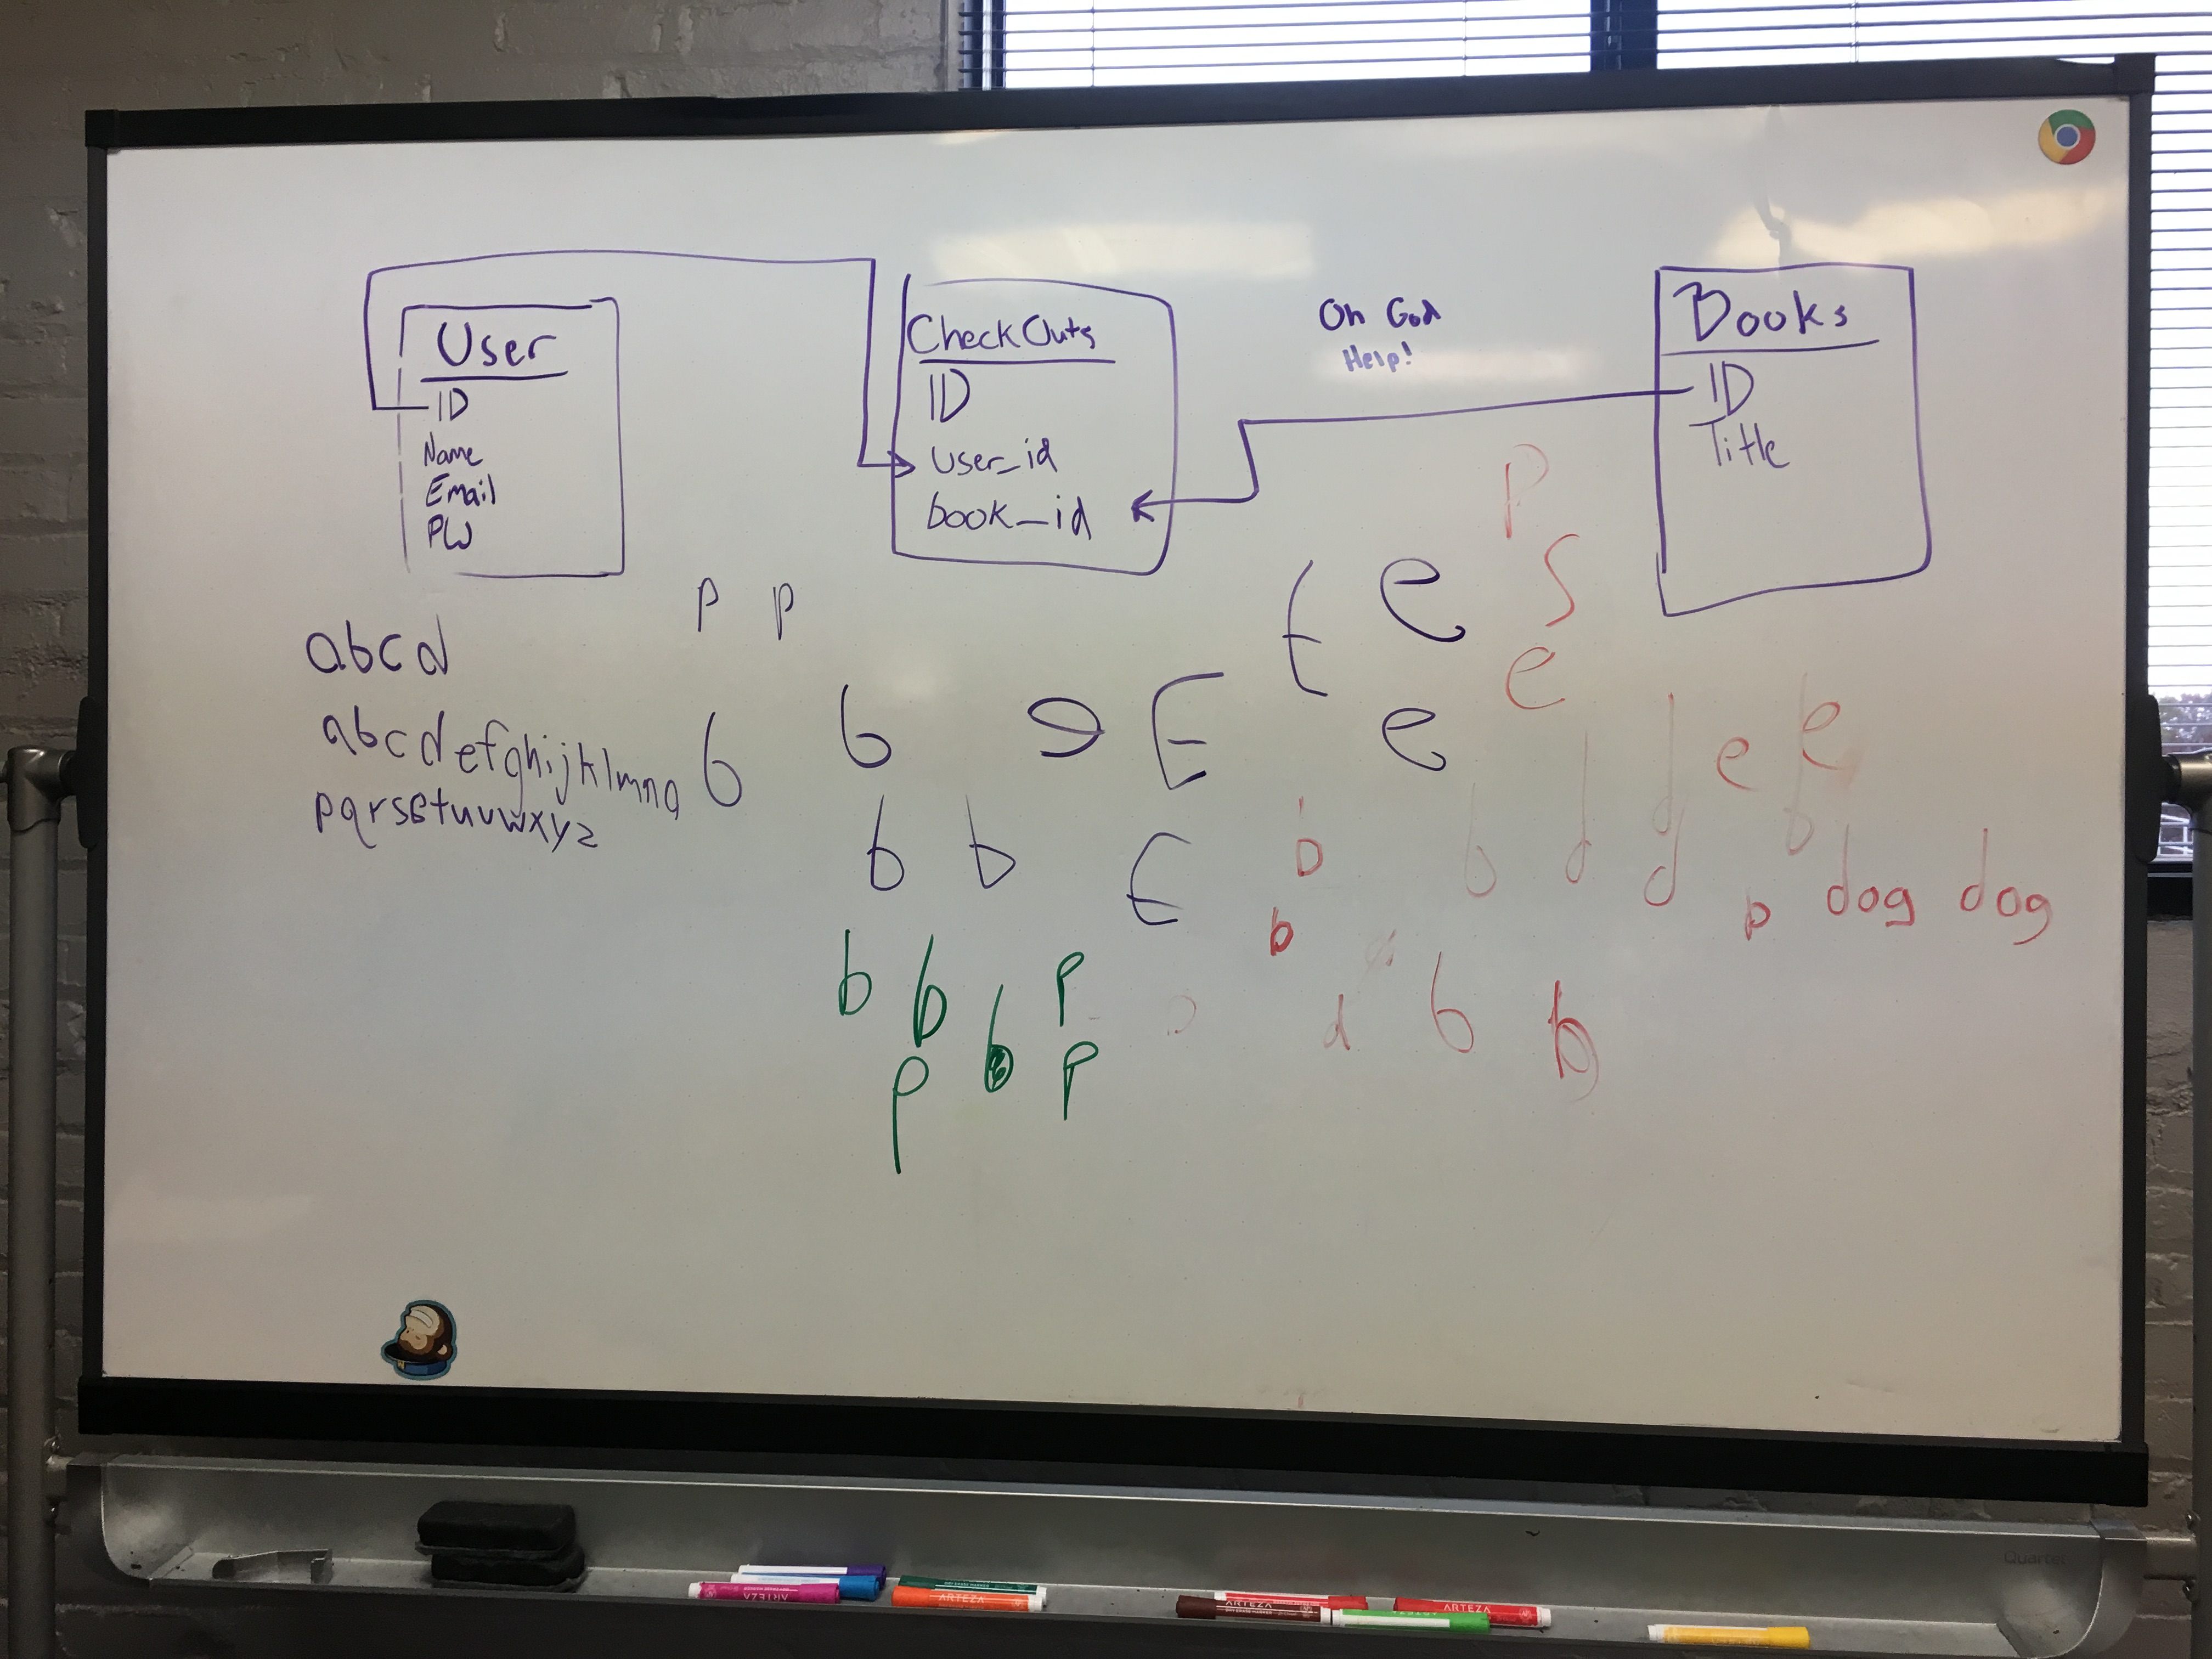 User
ID
Name
Email
PW
CheckOuts
ID
user_id
book_id
Oh God
Help!
Books
ID
Title
p p
abcd
abcdefghijklmno
pqrsttuvwxyz
b b e E
t e
e
b b E
P
S
e
e e
b b d d b
b p dog dog
d b b
b b b p
p p
ARTEZA
ARTEZA
ARTEZA
ARTEZA
Quartet